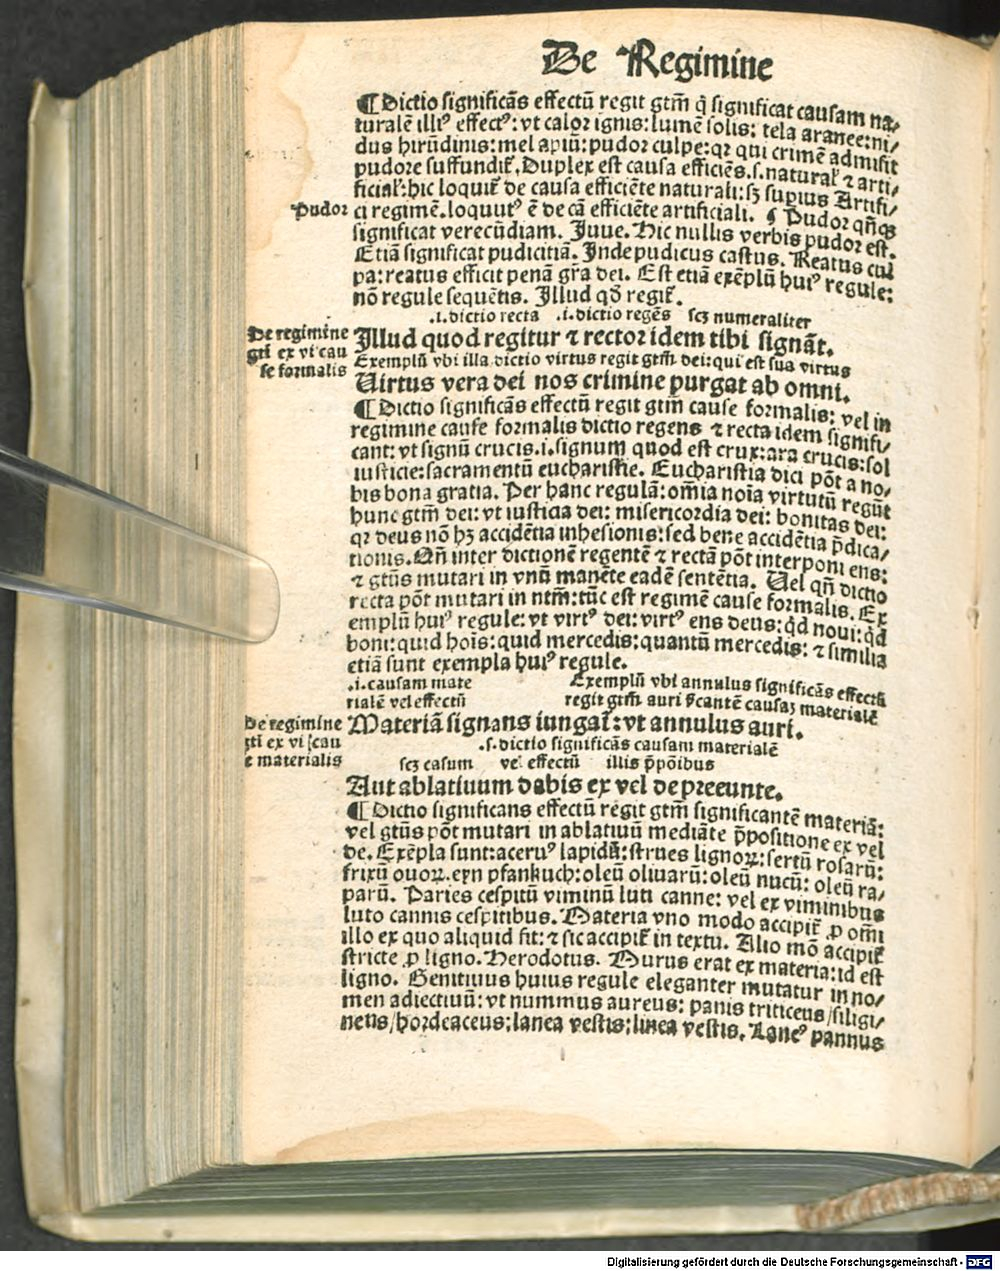 De Regimine
¶ Dictio significãs effectũ regit gtm̃ q̃ significat causam na⸗
turalẽ illiꝰ effectꝰ: vt calor ignis: lumẽ solis: tela aranee: ni⸗
dus hirũdinis: mel apiũ: pudor culpe: qꝛ qui crimẽ admisit
pudore suffundit̃. Duplex est causa efficiẽs .s. natural̃ ⁊ arti⸗
ficial̃: hic loquit̃ de causa efficiẽte naturali: sꝫ supius Artifi⸗
Pudor
ci regimẽ. loquutꝰ ẽ de cã efficiẽte artificiali. ¶ Pudor qñqꝫ
significat verecũdiam. Juue. Hic nullis verbis pudor est.
Etiã significat pudicitiã. Inde pudicus castus. Reatus cul
pa: reatus efficit penã gr̃a dei. Est etiã exẽplũ huiꝰ regule:
nõ regule sequẽtis. Illud qđ regit̃.
.i. dictio recta .i. dictio regẽs scꝫ numeraliter
De regimine
gti ex vi cau
se formalis
Illud quod regitur ⁊ rector idem tibi signãt.
Exemplũ vbi illa dictio virtus regit gtm̃ dei: qui est sua virtus
Uirtus vera dei nos crimine purgat ab omni.
¶ Dictio significãs effectũ regit gtm̃ cause formalis: vel in
regimine cause formalis dictio regens ⁊ recta idem signifi⸗
cant: vt signũ crucis .i. signum quod est crux: ara crucis: sol
iusticie: sacramentũ eucharistie. Eucharistia dici põt a no⸗
bis bona gratia. Per hanc regulã: om̃ia noĩa virtutũ regũt
hunc gtm̃ dei: vt iusticia dei: misericordia dei: bonitas dei:
qꝛ deus nõ hꝫ accidẽtia inhesionis: sed bene accidẽtia p̃dica⸗
tionis. Qñ inter dictionẽ regentẽ ⁊ rectã põt interponi ens:
⁊ gtũs mutari in vnũ manẽte eadẽ sentẽtia. Uel qñ dictio
recta põt mutari in ntm̃: tũc est regimẽ cause formalis. Ex
emplũ huiꝰ regule: vt virtꝰ dei: virtꝰ ens deus: qđ noui: qđ
boni: quid hoĩs: quid mercedis: quantũ mercedis: ⁊ similia
etiã sunt exempla huiꝰ regule.
.i. causam mate Exemplũ vbi annulus significãs effectũ
rialẽ vel effectũ regit gtm̃ auri scantẽ causaꝫ materialẽ
De regimine
gti ex vi cau
e materialis
Materiã signans iungat̃: vt annulus auri.
.s. dictio significãs causam materialẽ
scꝫ casum vel effectũ illis p̃põibus
Aut ablatiuum dabis ex vel de preeunte.
¶ Dictio significans effectũ regit gtm̃ significantẽ materiã:
vel gtũs põt mutari in ablatiuũ mediãte p̃positione ex vel
de. Exẽpla sunt: aceruꝰ lapidũ: strues lignoꝝ: sertũ rosarũ:
frixũ ouoꝝ. eyn pfankuch: oleũ oliuarũ: oleũ nucũ: oleũ ra⸗
parũ. Paries cespitũ viminũ luti canne: vel ex viminibus
luto cannis cespitibus. Materia vno modo accipit̃ ꝓ om̃i
illo ex quo aliquid fit: ⁊ sic accipit̃ in textu. Alio mõ accipit̃
stricte ꝓ ligno. Herodotus. Murus erat ex materia: id est
ligno. Genitiuus huius regule eleganter mutatur in no⸗
men adiectiuũ: vt nummus aureus: panis triticeus/siligi⸗
neus/hordeaceus: lanea vestis: linea vestis. Laneꝰ pannus
Digitalisierung gefördert durch die Deutsche Forschungsgemeinschaft - DFG